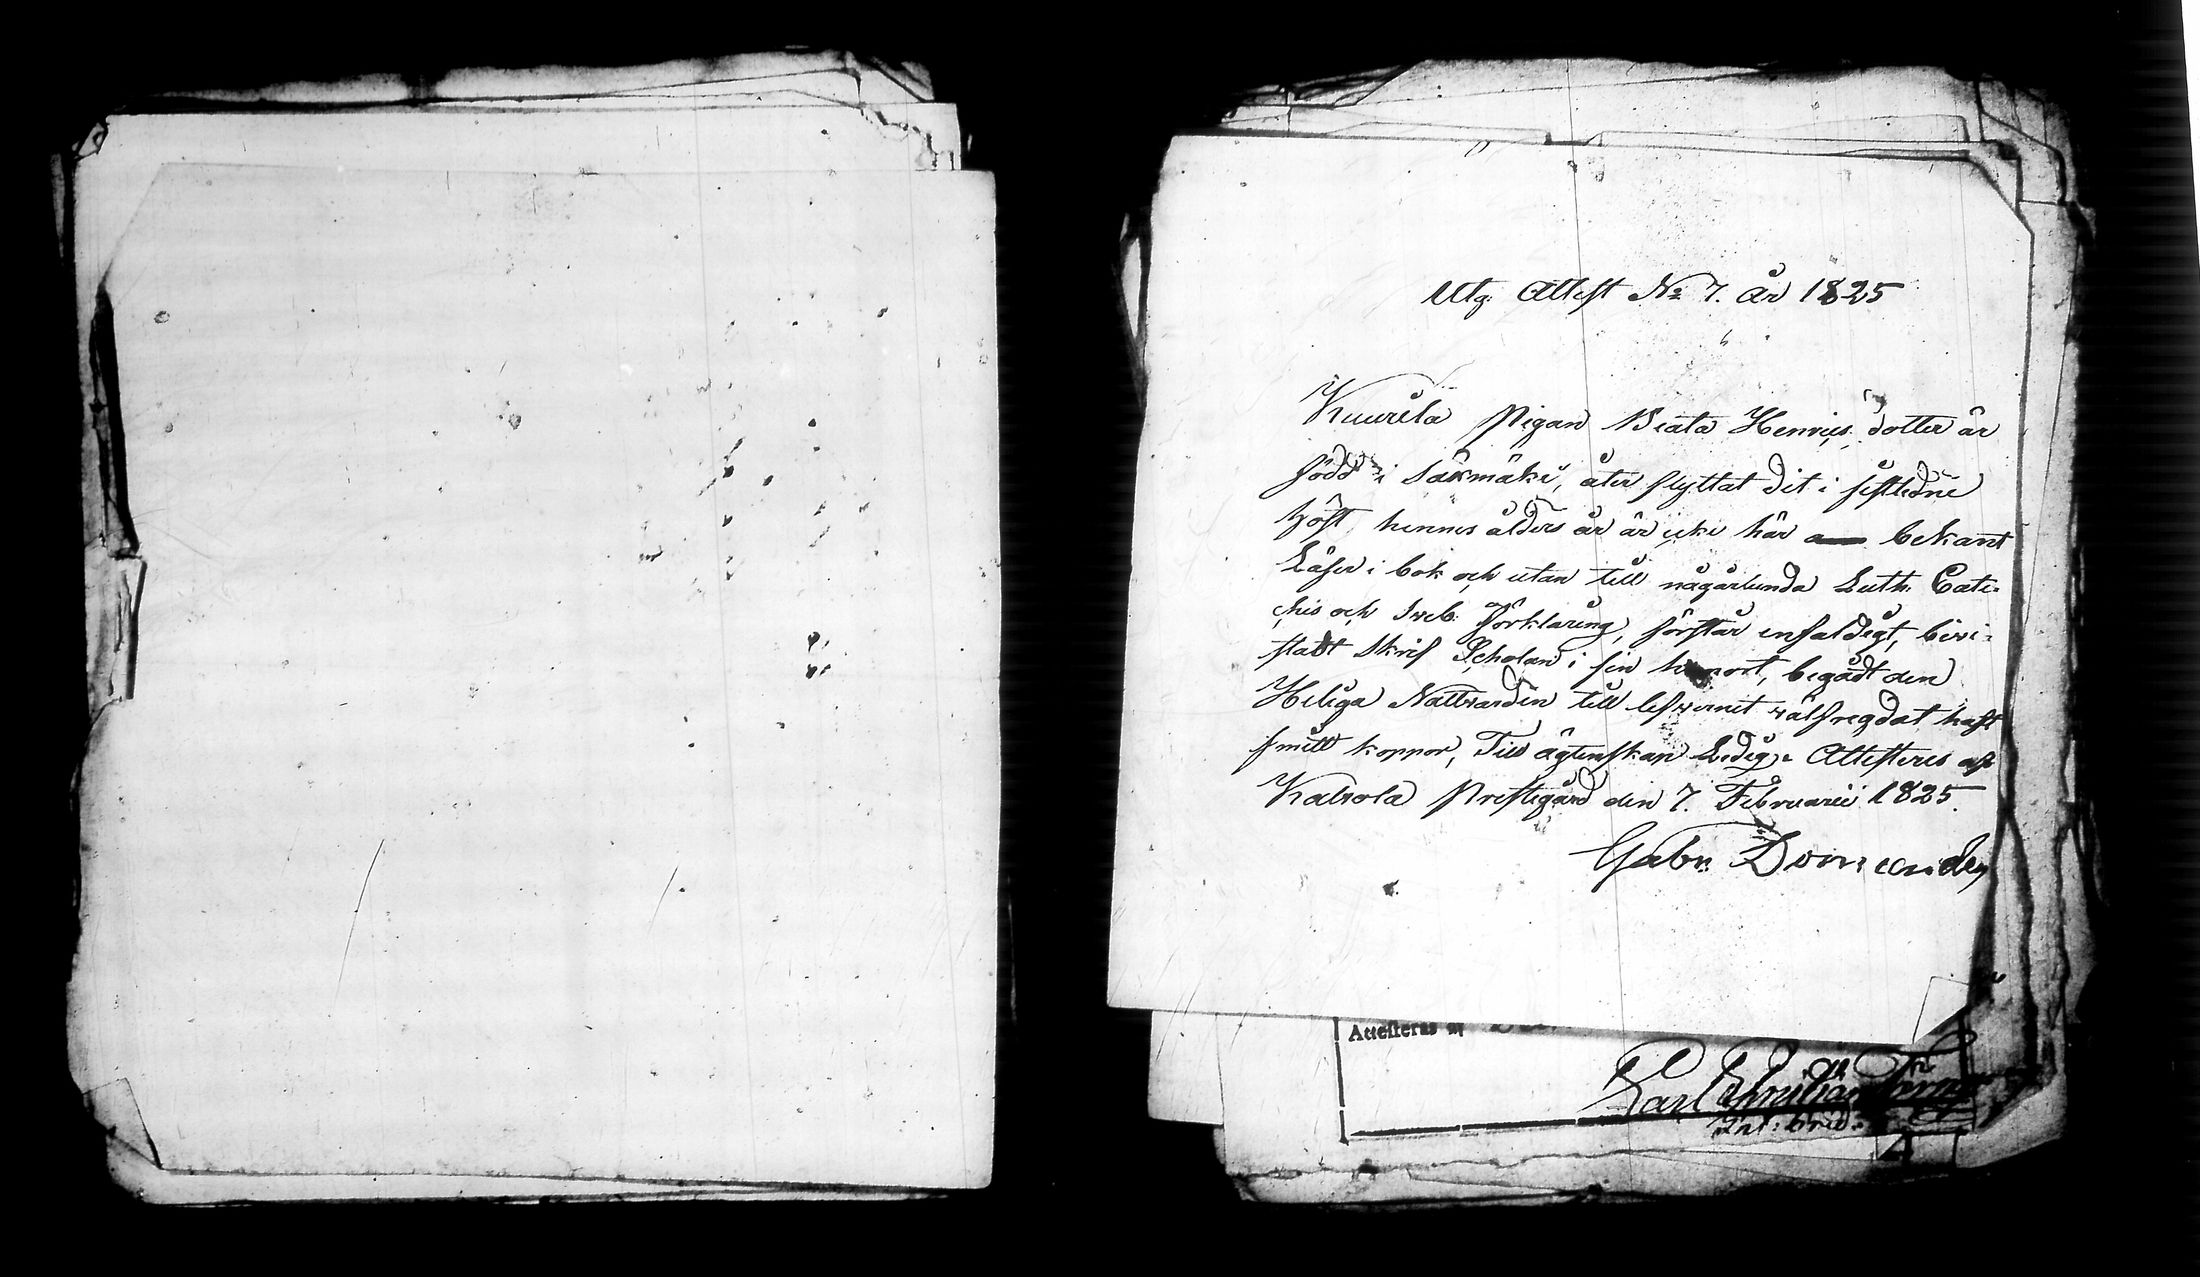 Utg. Attest No 7. År 1825
Kuurila Pigan Beata Henrics dotter är
född i Säxmäki, åter flyttat dit i sistledne
höst, hennes ålders år är icke här bekant
Läser i bok och utan till någorlunda Luth. Cate-
chis och Sveb. Förklaring, förstår enfaldigt, bivi-
stadt Skrif Scholan i sin hemort, begådt den
Heliga Nattvarden till lefvernet välfregdat haft
smitt koppor, Till ägtenskap Ledig. Attesteres af
Kalvola Prestegård den 7. Februarii 1825.
Gabr.
Attesteras
Carl